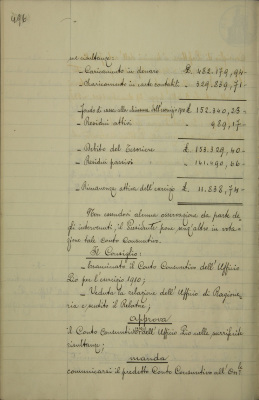 496
risultanze:
- Caricamento in denaro £. 482.179,94-
- Scaricamento in carte contabili - 329.339,71-
Fondo di cassa alla chiusura dell'esercizio 1910 £ 152.840,23-
- Residui attivi - 489,17-
- Debito del Tesoriere £. 153.329,40-
- Residui passivi - 141.490,66-
- Rimanenza attiva dell'esercizio £ 11.838,74-
Non essendovi alcuna osservazione da parte de=
gli intervenuti, il Presidente pone senz'altro in vota=
zione tale Conto Consuntivo.
Il Consiglio;
- Esaminato il Conto Consuntivo dell'Ufficio
Pio per l'esercizio 1910;
- Veduta la relazione dell'Ufficio di Ragione=
ria e udito il Relatore;
approva
il Conto Consuntivo dell'Ufficio Pio nelle surriferite
risultanze;
manda
comunicarsi il predetto Conto Consuntivo all'On.